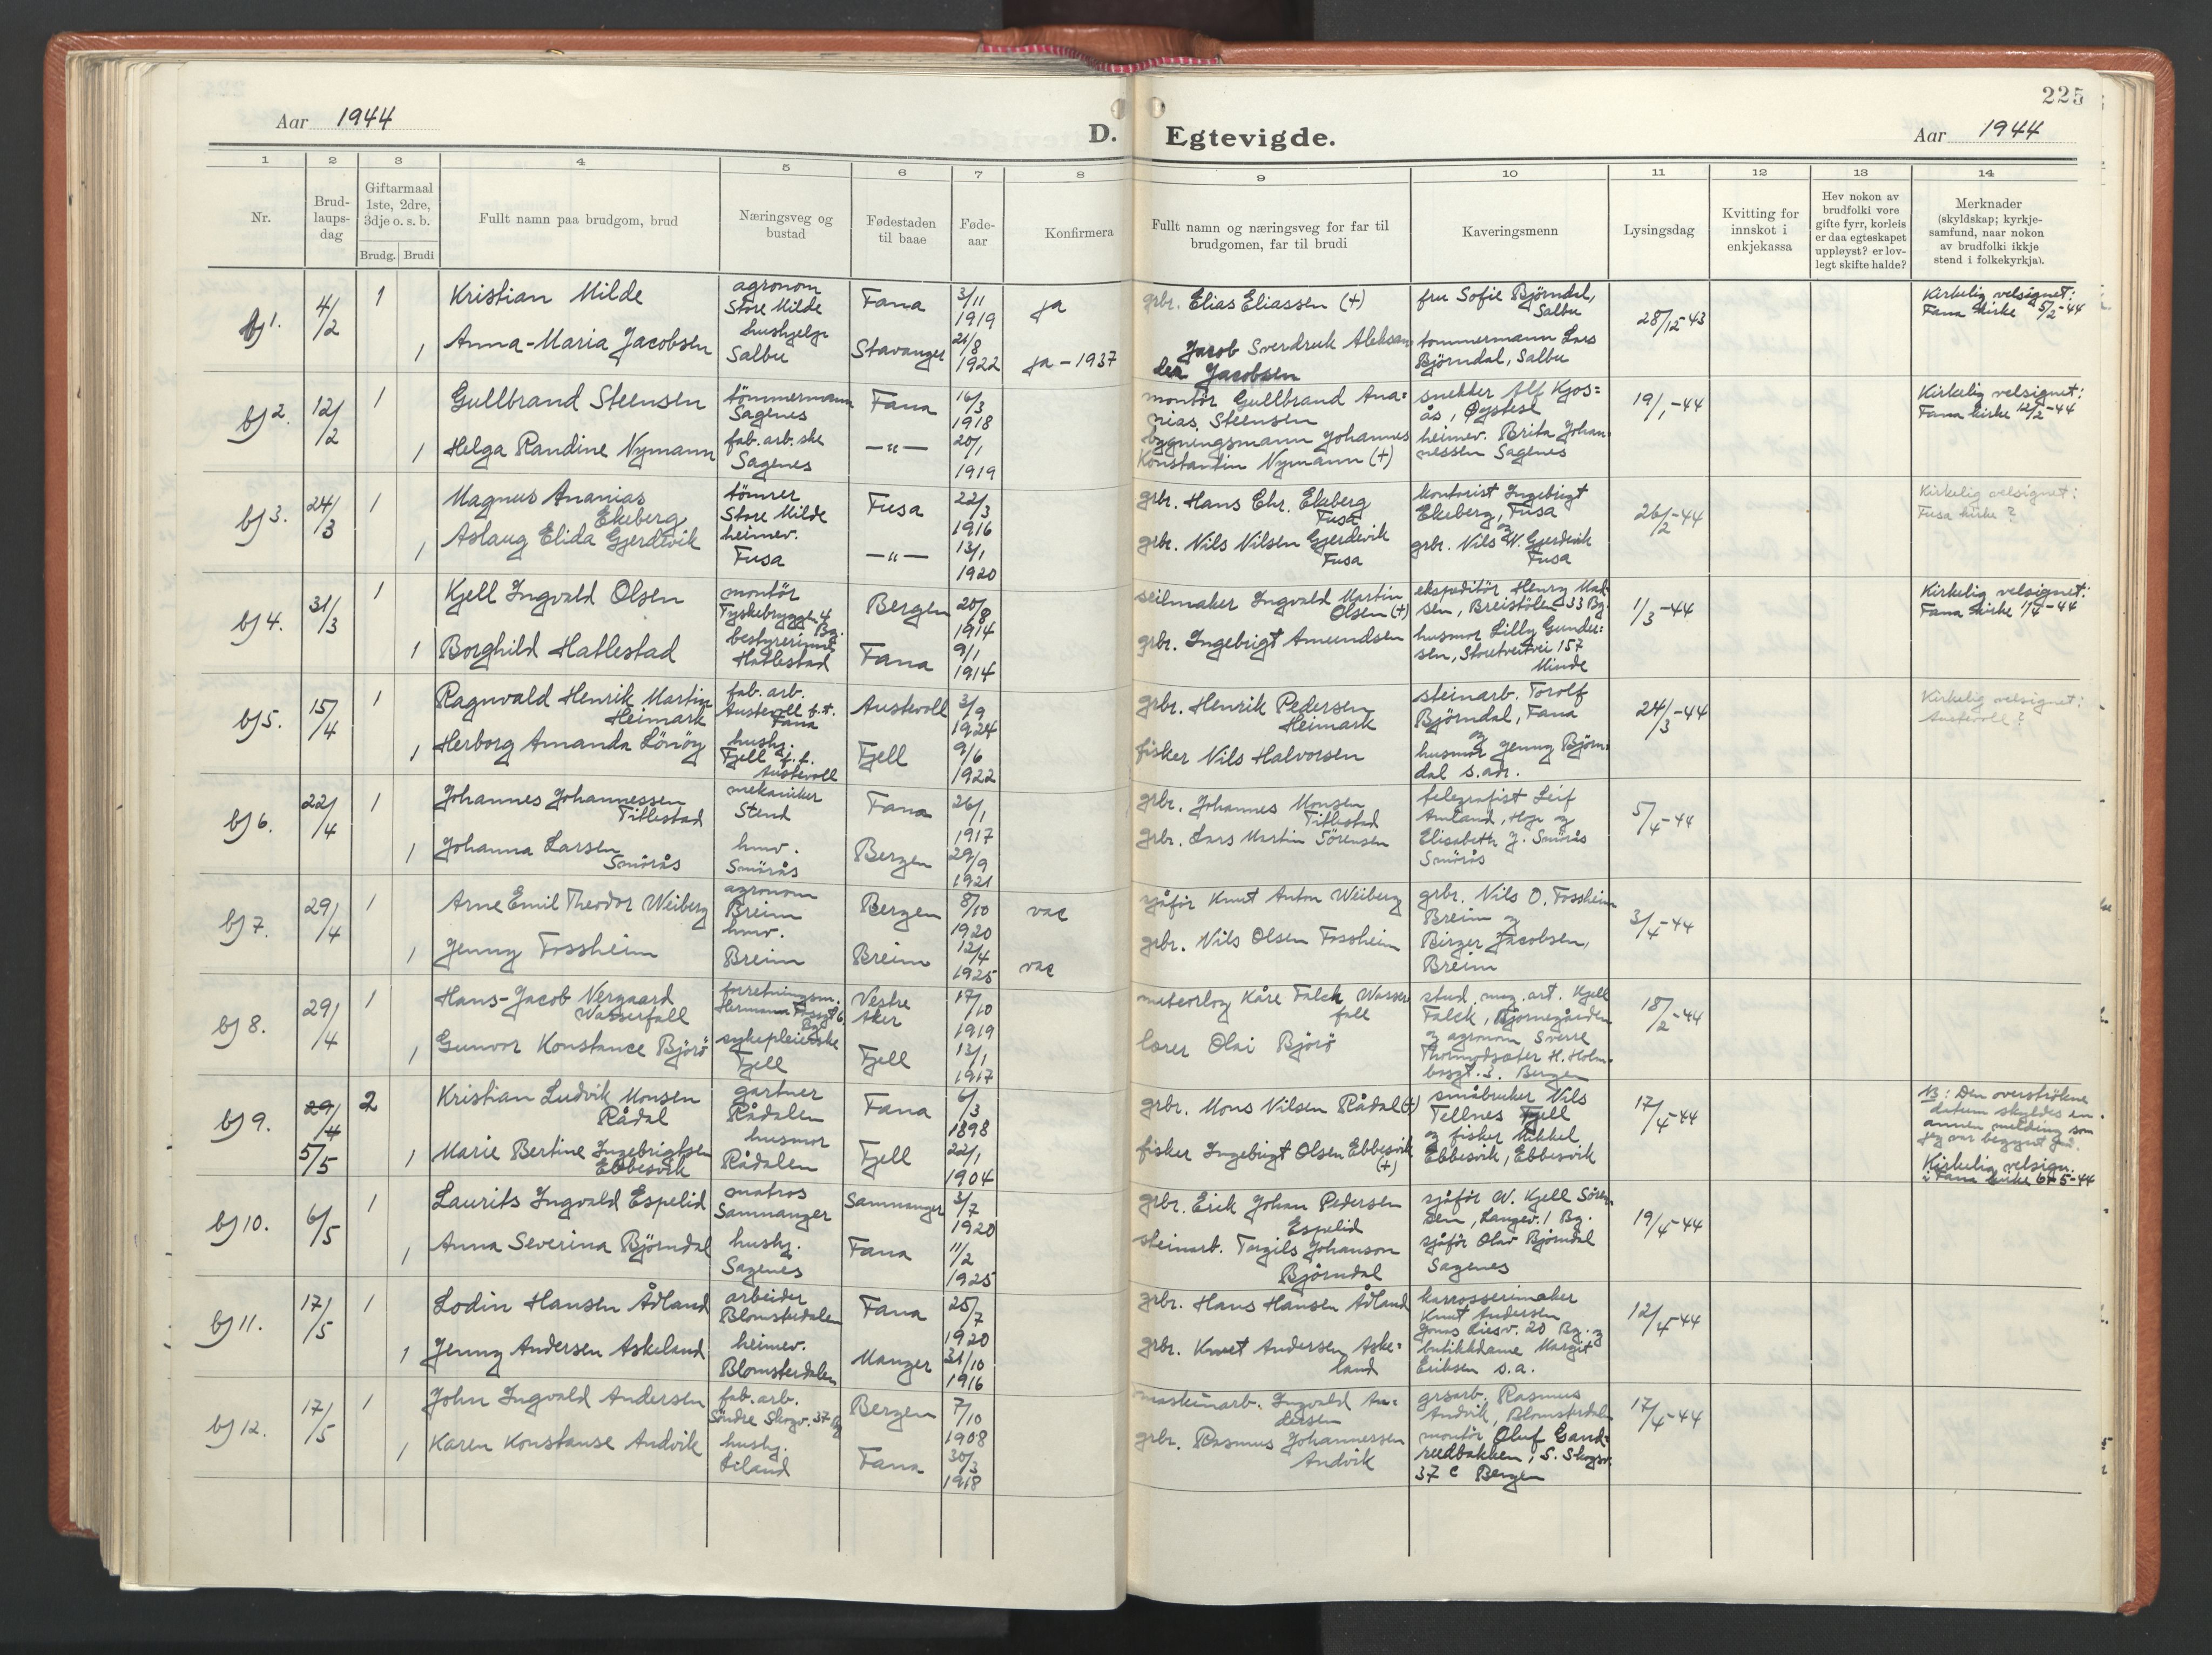 225
Aar 1944
D. Egtevigde.
Aar 1944
1 2 3 4 5 6 7 8 9 10 11 12 13 14
Nr.
Brud-
laups-
dag
Giftarmaal
1ste, 2dre,
3dje o. s. b.
Brudg. Brudi
Fullt namn paa brudgom, brud
Næringsveg og
bustad
Fødestaden
til baae
Føde-
aar
Konfirmera
Fullt namn og næringsveg for far til
brudgomen, far til brudi
Kaveringsmenn
Lysingsdag
Kvitting for
innskot i
enkjekassa
Hev nokon av
brudfolki vore
gifte fyrr, korleis
er daa egteskapet
uppløyst? er lov-
legt skifte halde?
Merknader
(skyldskap; kyrkje-
samfund, naar nokon
av brudfolki ikkje
stend i folkekyrkja).
bj 1. 4/2 1 Kristian Milde
agronom
Store Milde
Fana 3/11 1919 ja
grbr. Elias Eliassen (+)
fru Sofie Björndal,
Salbu
28/12-43
Kirkelig velsignet:
Fana kirke 5/2-44
1 Anna-Maria Jacobsen
hushjelp
Salbu
Stavanger 21/8 1922 ja - 1937
Jacob Sverdruk Aleksan
der Jacobsen
tømmermann Lars
Björndal, Salbu
bj 2. 12/2 1 Gullbrand Steensen
tömmermann
Sagenes
Fana 16/3 1918
montör Gullbrand Ana=
nias Steensen
snekker Alf Kjos=
ås, Øystese
19/1-44
Kirkelig velsignet:
Fana kirke 12/2-44
1 Helga Randine Nymann
fab. arb. ske
Sagenes
—"— 20/1 1919
bygningsmann Johannes
Konstantin Nymann (+)
heimev. Brita Johan-
nessen Sagenes
bj 3. 24/3 1 Magnus Ananias
Ekeberg
tömrer
Store Milde
Fusa 22/3 1916
grbr. Hans Chr. Ekeberg
Fusa
kontorist Ingebrigt
Ekeberg, Fusa
og
26/2-44
Kirkelig velsignet:
Fusa kirke ?
1 Aslaug Elida Gjerdevik
heimev.
Fusa
—"— 13/1 1920
grbr. Nils Nilsen Gjerdevik
Fusa
grbr. Nils N. Gjerdevik
Fusa
bj 4. 31/3 1 Kjell Ingvald Olsen
montör
Tyskebryggen 4
Bg.
Bergen 20/8 1914
seilmaker Ingvald Martin
Olsen (+)
ekspeditör Henry Mad-
sen, Breistølen 33 Bg.
1/3-44
Kirkelig velsignet:
Fana kirke 1/4-44
1 Borghild Hatlestad
bestyrerinne
Hatlestad
Fana 9/1 1914
grbr. Ingebrigt Amundsen
husmor Lilly Gunder=
sen, Storetveitvei 157
Minde
bj 5. 15/4 1 Ragnvald Henrik Martin
Heimark
fab. arb.
Austevoll f.t.
Fana
Austevoll 3/9 1924
grbr. Henrik Pedersen
Heimark
steinarb. Torolf
Björndal, Fana
og
24/3-44
Kirkelig velsignet:
Austevoll ?
1 Herborg Amanda Lönöy
hushj.
Fjell f.t.
Austevoll
Fjell 9/6 1922
fisker Nils Halvorsen
husmor Jenny Björn-
dal s. adr.
bj 6. 22/4 1 Johannes Johannessen
Titlestad
mekaniker
Stend
Fana 26/1 1917
grbr. Johannes Monsen
Titlestad
telegrafist Leif
Amland, Hop og
5/4-44
1 Johanna Larsen
Smörås
hmv.
Smörås
Bergen 29/9 1921
grbr. Lars Martin Sörensen
Elisabeth J. Smörås
Smörås
bj 7. 29/4 1 Arne Emil Theodor Weiberg
agronom
Breim
Bergen 8/10 1920 vac
sjåför Knut Anton Weiberg
grbr. Nils O. Fossheim
Breim og
3/4-44
1 Jenny Fossheim
hmv.
Breim
Breim 12/4 1925 vac
grbr. Nils Olsen Fossheim
Birger Jacobsen,
Breim
bj 8. 29/4 1 Hans-Jacob Nergaard
Wasserfall
forretningsm.
Vestre
Aker 17/10 1919
meteorlog Kåre Falck Wasser
fall
stud. mag. art. Kjell
Falck, Bjørnegården
18/2-44
1 Gunvor Konstance Björö
sykepleierske
Fjell
Fjell 13/1 1917
lærer Olai Björö
og agronom Sverre
Thormodsæter H. Holm-
boegt. 3. Bergen
bj 9. 29/4 5/5 2 Kristian Ludvik Monsen
Rådal
gartner
Rådalen
Fana 6/3 1898
grbr. Mons Nilsen Rådal (+)
småbruker Nils
Tellnes Fjell
17/4-44
NB: Den overströkne
datum skyldes en
annen melding som
jeg var begynt på.
1 Marie Bertine Ingebrigtsen
Ebbesvik
husmor
Rådalen
Fjell 22/1 1904
fisker Ingebrigt Olsen Ebbesvik
(+)
og fisker Mikkel
Ebbesvik, Ebbesvik
Kirkelig velsign.
i Fana kirke 6/5-44
bj 10. 6/5 1 Laurits Ingvald Espelid
matros
Samnanger
Samnanger 3/7 1920
grbr. Erik Johan Pedersen
Espelid
sjåför W. Kjell Sören-
sen, Langev. 1 Bg.
19/4-44
1 Anna Severina Björndal
hushj.
Sagenes
Fana 11/2 1925
steinarb. Torgils Johanson
Björndal
sjåför Olav Björndal
Sagenes
bj 11. 17/5 1 Lodin Hansen Ådland
arbeider
Blomsterdalen
Fana 25/7 1920
grbr. Hans Hansen Ådland
karrosserimaker
Knut Andersen
Jonas Liesv. 20 Bg. og
12/4-44
1 Jenny Andersen Askeland
heimev.
Blomsterdalen
Manger 31/10 1916
grbr. Knut Andersen Aske=
land
butikkdame Margit
Eriksen s.a.
bj 12. 17/5 1 John Ingvald Andersen
fab. arb.
Söndre Skogv. 37 Bg
Bergen 7/10 1908
maskinarb. Ingvald An-
dersen
grsarb. Rasmus
Andvik, Blomsterdalen
17/4-44
1 Karen Konstanse Andvik
hushj.
Liland
Fana 30/3 1918
grbr. Rasmus Johannessen
Andvik
montör Oluf Sand-
reedbakken, S. Skogv.
37 c Bergen